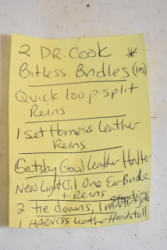 2 DR. COOK *
Bitless Bridles (in)
Quick loop split
Reins
1 set Harness Leather
Reins
Gatsby Goal Leather Halter
New Light Oil One Ear Bridle
+ Reins
2 tie downs, 1
1 HARNESS Leather Headstall